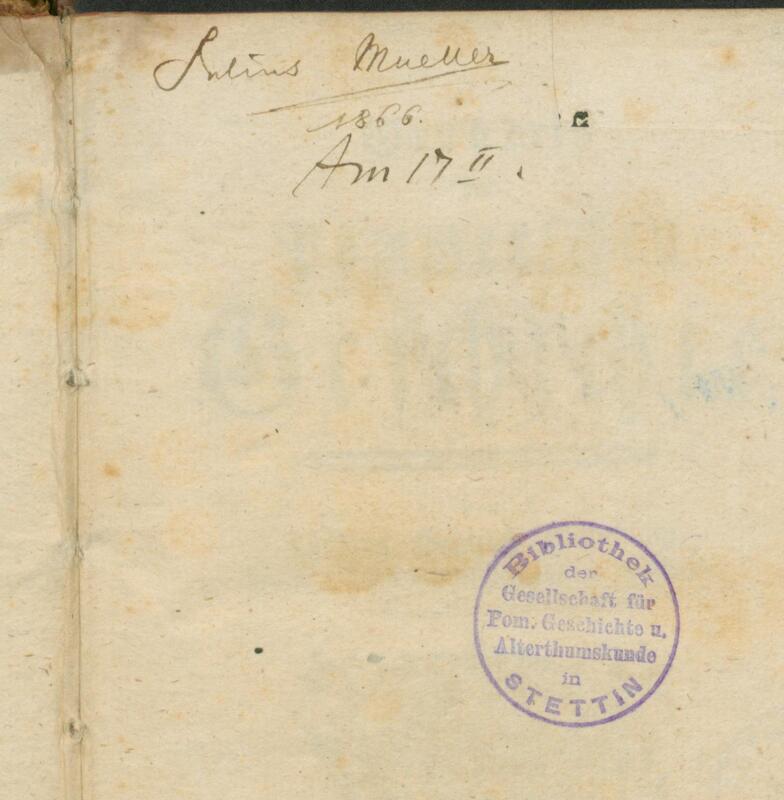 Julius Mueller
1866.
Am 17 II.
Bibliothek
der
Gesellschaft für
Pom. Geschichte u.
Alterthumskunde
in
STETTIN